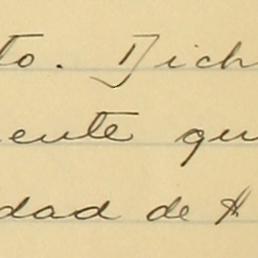 to. Dich
ente qu
dad de H